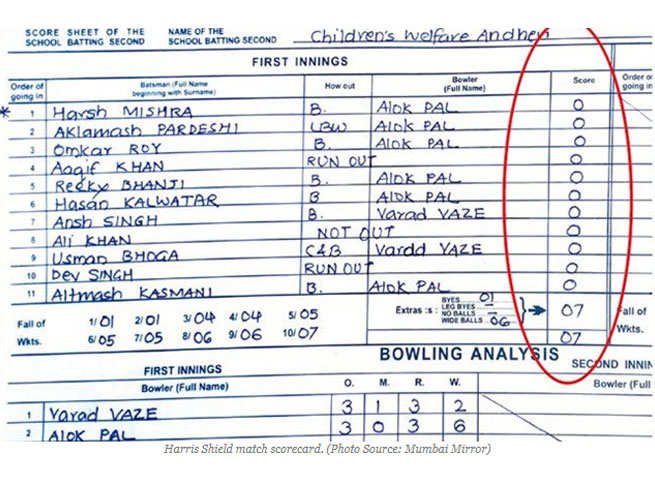 SCORE SHEET OF THE NAME OF THE
SCHOOL BATTING SECOND SCHOOL BATTING SECOND Children's Welfare Andheri
FIRST INNINGS
Order of going in Batsman (Full Name beginning with Surname) How out Bowler (Full Name) Score Order of going in
* 1 Harsh MISHRA B. Alok PAL 0
2 Aklamash PARDESHI LBW Alok PAL 0
3 Omkar ROY B. Alok PAL 0
4 Aaqif KHAN RUN OUT 0
5 Recky BHANJI B. Alok PAL 0
6 Hasan KALWATAR B Alok PAL 0
7 Ansh SINGH B. Varad VAZE 0
8 Ali KHAN NOT OUT 0
9 Usman BHOGA C&B Varad VAZE 0
10 Dev SINGH RUN OUT 0
11 Altmash KASMANI B. Alok PAL 0
Extras :s : BYES 01
LEG BYES –
NO BALLS –
WIDE BALLS 06 07
Fall of Wkts. 1/01 2/01 3/04 4/04 5/05
6/05 7/05 8/06 9/06 10/07
07
Fall of Wkts.
BOWLING ANALYSIS
FIRST INNINGS SECOND INNIN
Bowler (Full Name) O. M. R. W. Bowler (Full
1 Varad VAZE 3 1 3 2
2 Alok PAL 3 0 3 6
Harris Shield match scorecard. (Photo Source: Mumbai Mirror)